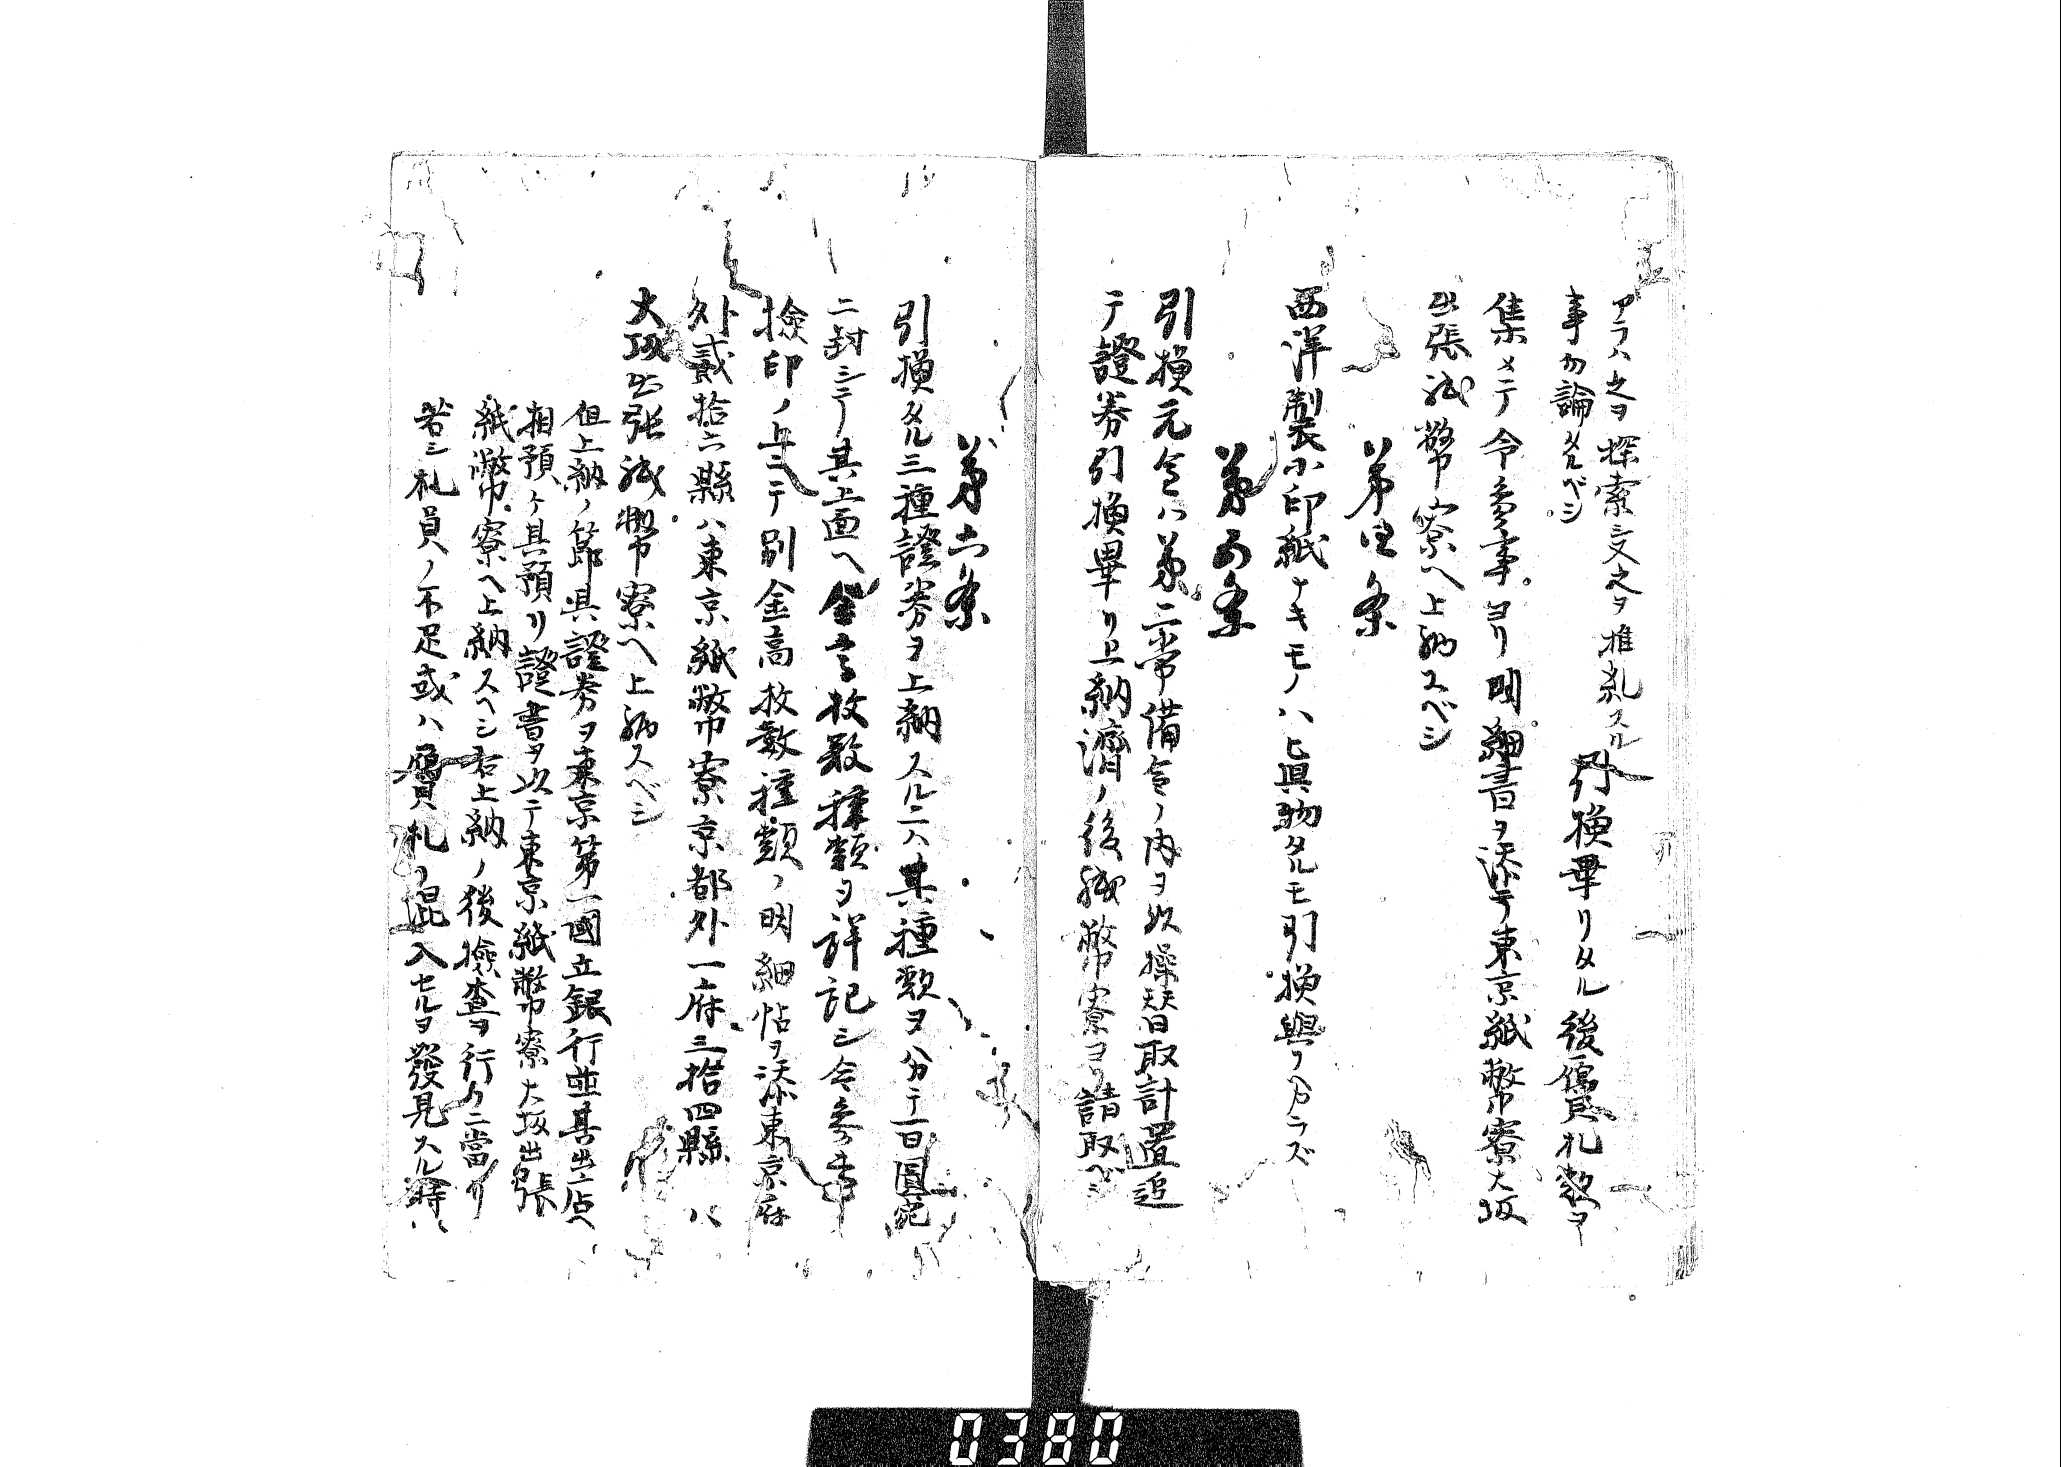 アラハ之ヲ探索シ又之ヲ推糺スル
事勿論タルベシ 引換畢リタル後贋札数ヲ
集メテ令参事ヨリ明細書ヲ添テ東京紙幣寮大坂
出張紙幣寮ヘ上納スベシ
第四条
西洋製小印紙ナキモノハ眞物タルモ引換與フベカラズ
第五条
引換元金ハ第二常備金ノ内ヲ以操替取計置追
テ證券引換畢リ上納濟ノ後紙幣寮ヨリ請取ベシ
第六条
引換タル三種證券ヲ上納スルニハ其種類ヲ分テ一百圓宛
ニ封シテ其上面ヘ金高枚数種類ヲ詳記シ令参事
檢印ノ上ニテ別金高枚數種類ノ明細帖ヲ添東京府
外貳拾六縣ハ東京紙幣寮京都外一府三拾四縣ハ
大坂出張紙幣寮ヘ上納スベシ
但上納ノ節其證券ヲ東京第一國立銀行並其出店ヘ
相預ケ其預リ證書ヲ以テ東京紙幣寮大坂出張
紙幣寮ヘ上納スヘシ右上納ノ後檢査ヲ行フニ當リ
若シ札員ノ不足或ハ贋札ノ混入セルヲ發見スル時ハ
0380